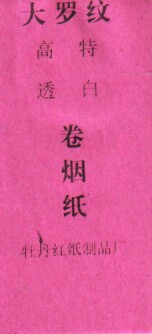 大罗纹
高特
透白
卷烟纸
牡丹红纸制品厂